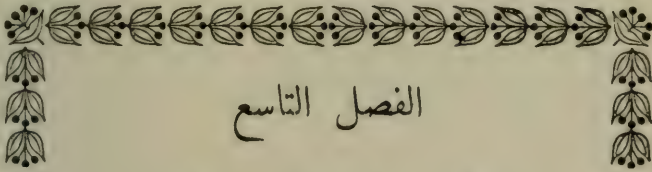 الفصل التاسع